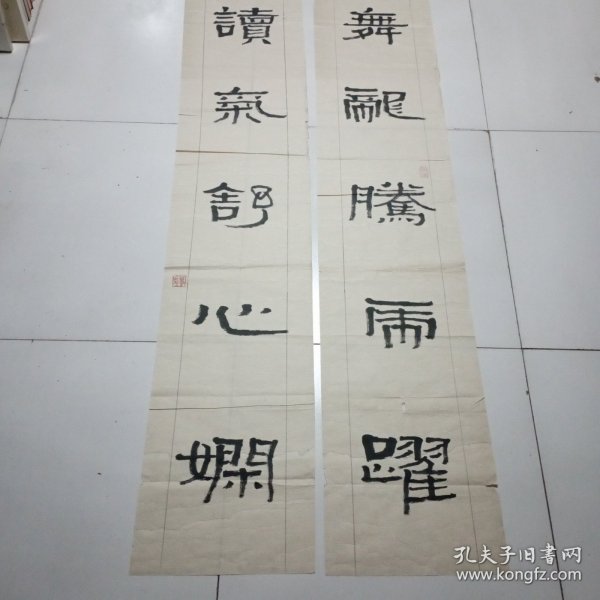 舞龍騰雨躍
讀氣舒心嫻
孔夫子旧书网
www.kongfz.com